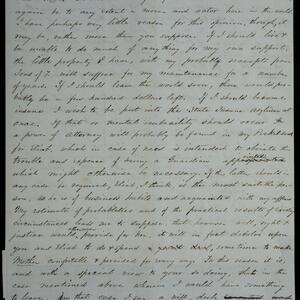 again to to any extent a moving and water here in the world
I have perhaps very little reason for this opinion, though, it
may be, rather more than you suppose. If I should live &
be unable to do much of anything for my own support,
the little property I have, with my probably receipts from
Sons of T. will suffice for my maintenance for a number
of years. If I should leave the world soon, there would pro-
bably be a few hundred dollars left. If I should become
insane I wish to be put into the State Insane Asylum at
once. If that or mental imbecility should occur
a power of Attorney will probably be found in my Pocketbook
for Elish, which in case of need is intended to obviate the
trouble and expense of having a Guardian appointed
which might otherwise be necessary. If the latter should in
any case be required, Elish, I think, is the most suitable per-
son, as he is of business habits and acquainted with my affairs.
My estimate of probabilities and of the practical results of
circumstances leads me to suppose that having done what
justice would provide for, it will in fact devolve upon
you and Elish to do and spend a good deal, sometime to make
Mother comfortable & provided for every way. For this reason it is,
and with a special view to your so doing, that in the
case mentioned above whereon I would have something
to leave, for that case, I saw a will duly